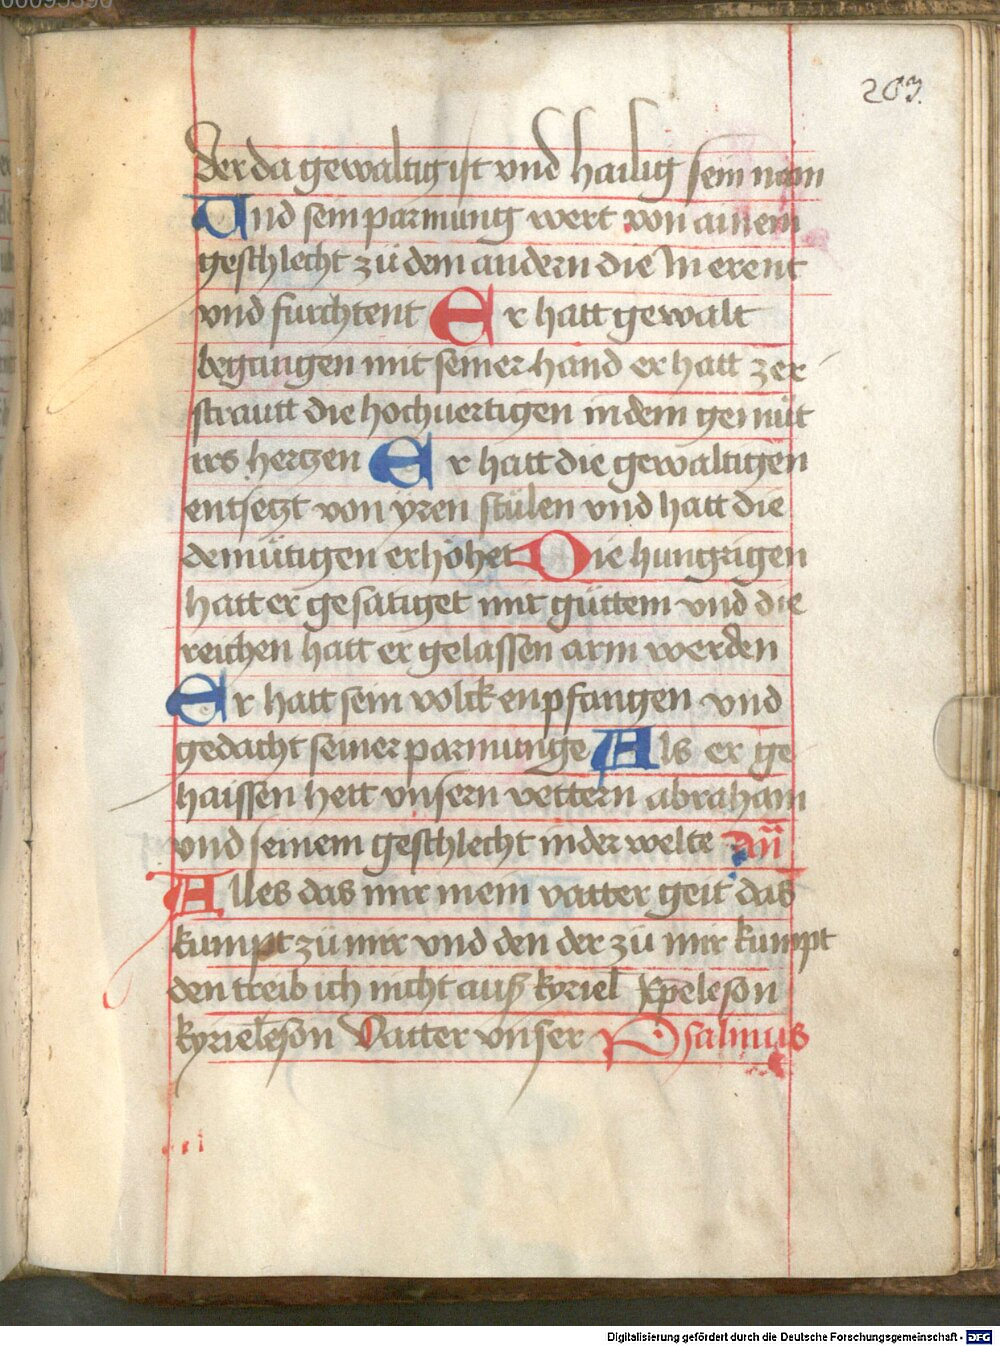 203.
der da gewaltig ist vnd hailig sein nam
Und sein parmung wert von ainem
geschlecht zů dem andern die In erent
vnd furchtent Er hatt gewalt
begangen mit seiner hand er hatt zer
straütt die hochuertigen in dem gemüt
irs hertzen Er hatt die gewaltigen
entsetzt von yren stülen vnd hatt die
demütigen erhöhet Die hungrigen
hatt er gesatiget mit güttem vnd die
reichen hatt er gelassen arm werden
Er hatt sein volck enpfangen vnd
gedacht seiner parmunge Als er ge
haissen hett vnsern vettern abraham
vnd seinem geschlecht in der welte An̄
Alles das mir mein vatter geit das
kumpt zů mir vnd den der zů mir kumpt
den treib ich nicht auß kyriel xpeleson
kyrieleson Vatter vnser Psalmus
Digitalisierung gefördert durch die Deutsche Forschungsgemeinschaft - DFG